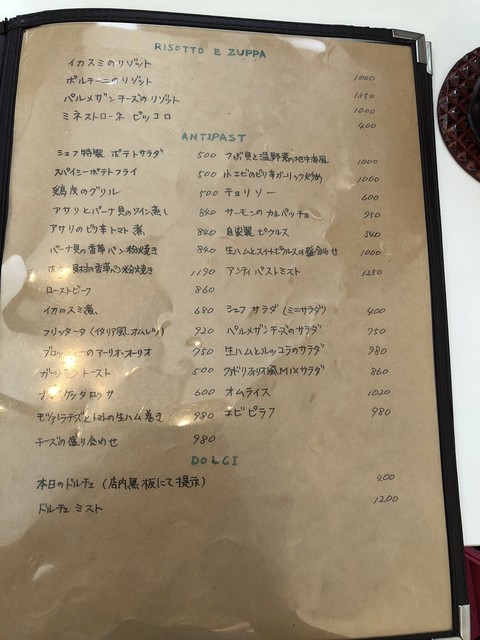 RISOTTO E ZUPPA
イカスミのリゾット 1000
ポルチーニのリゾット 1350
パルメザンチーズのリゾット 1000
ミネストローネ ピッコロ 400
ANTIPAST
シェフ特製 ポテトサラダ 500
スパイシーポテトフライ 500
鶏皮のグリル 500
アサリとパーナ貝のワイン蒸し 840
アサリのピリ辛トマト煮 840
パーナ貝の香草パン粉焼き 840
香草パン粉焼き 1190
ローストビーフ 860
イカのスミ煮 680
フリッタータ (イタリア風オムレツ) 920
ブロッコリーのアーリオ・オーリオ 750
ガーリックトースト 500
ブルスケッタロッサ 600
モッツァレラチーズとトマトの生ハム巻き 980
チーズの盛り合わせ 980
つぶ貝と温野菜の地中海風 1000
小エビのピリ辛ガーリック炒め 1000
チョリソー 600
サーモンのカルパッチョ 950
自家製ピクルス 340
生ハムとスイートピクルスの盛合わせ 1000
アンティパストミスト 1250
シェフ サラダ (ミニサラダ) 400
パルメザンチーズのサラダ 750
生ハムとルッコラのサラダ 980
風MIXサラダ 860
オムライス 1020
エビピラフ 980
DOLCI
本日のドルチェ (店内黒板にて提示) 400
ドルチェ ミスト 1200